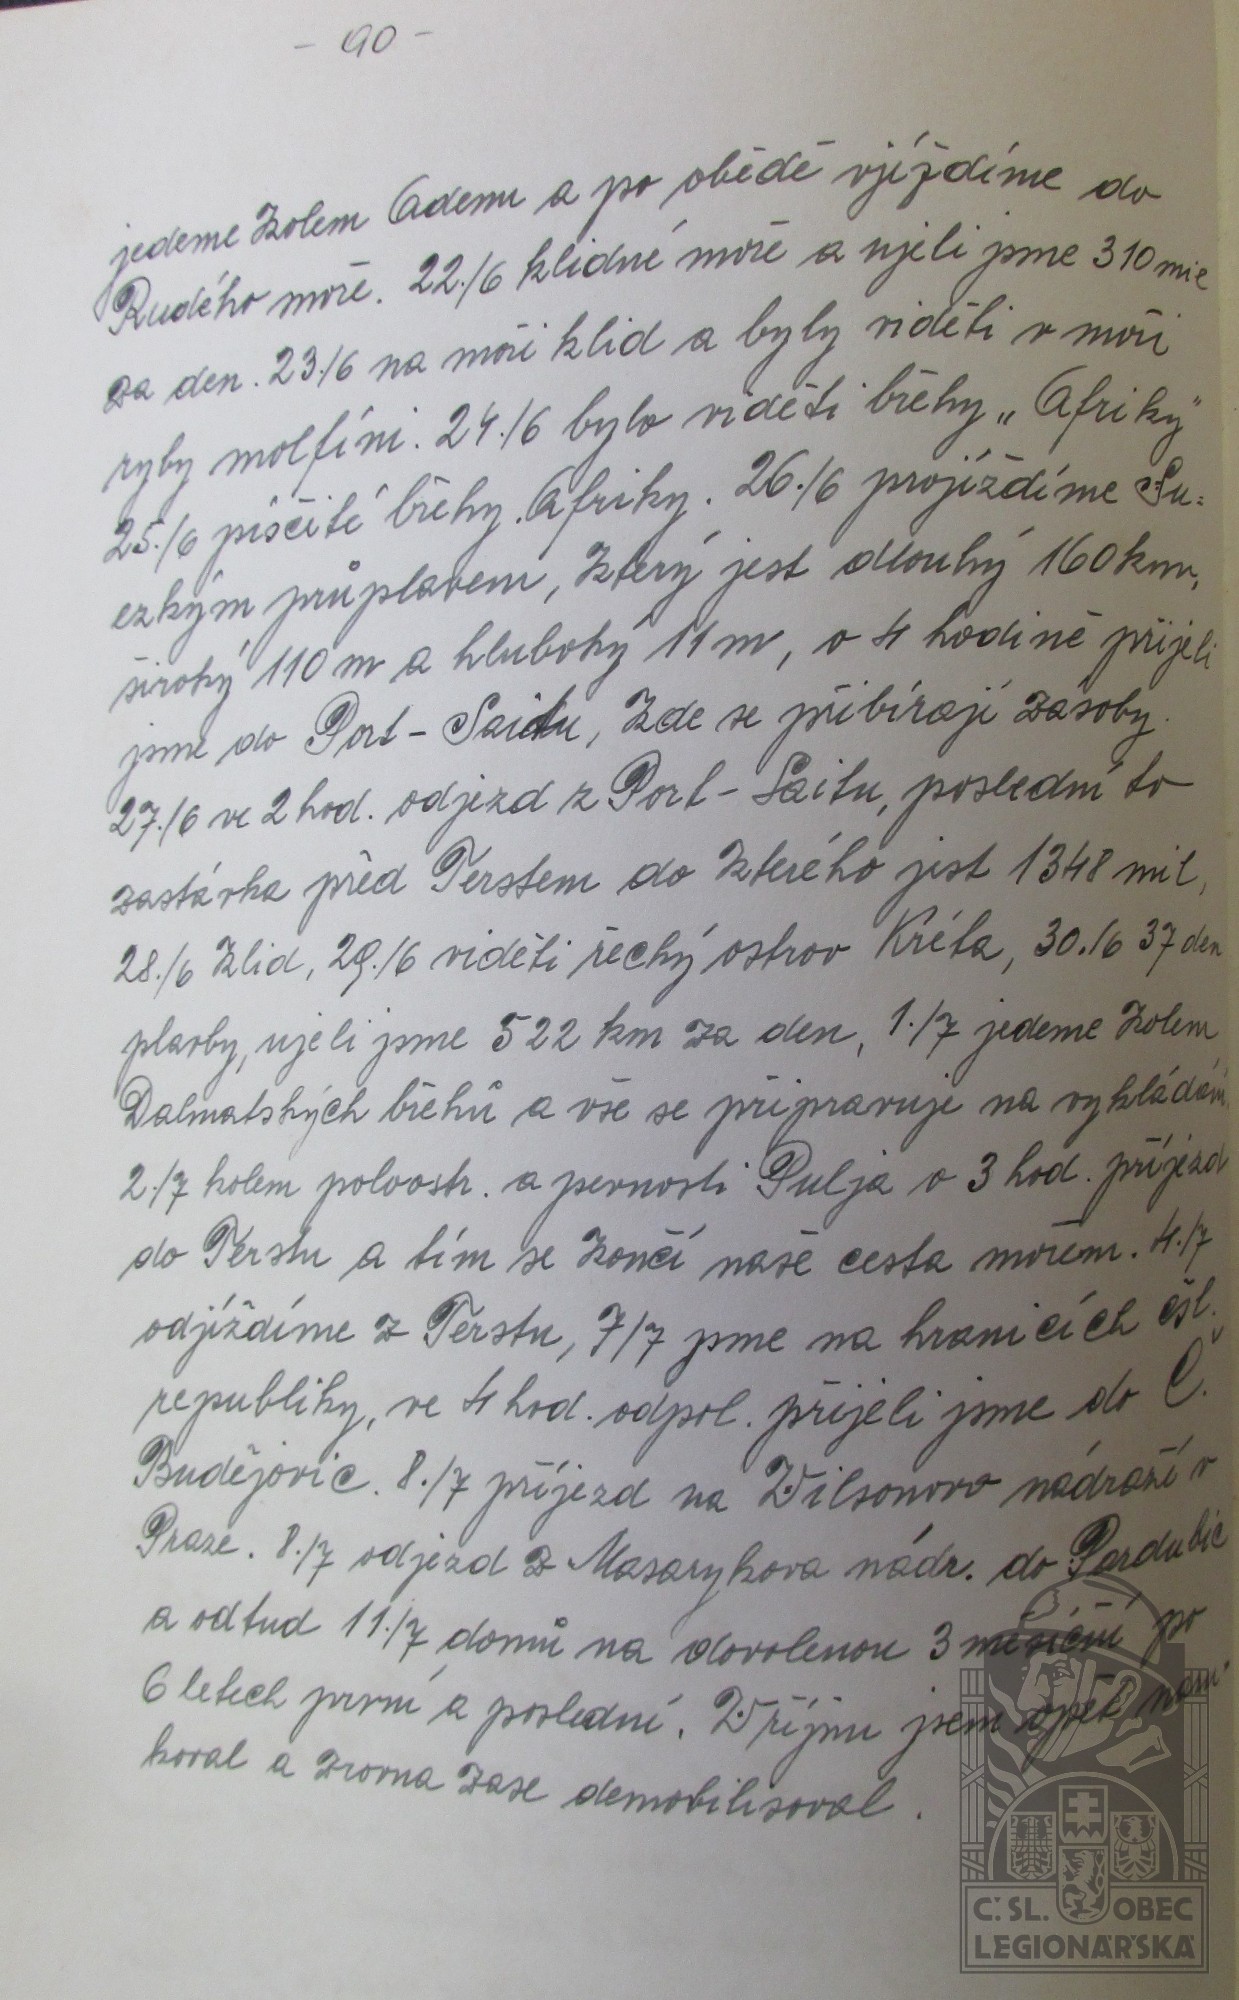 - 90 -
jedeme kolem Adenu a po obědě vjíždíme do
Rudého moře. 22./6 klidné moře a ujeli jsme 310 mil
za den. 23./6 na moři klid a byly viděti v moři
ryby molfíni. 24./6 bylo viděti břehy „Afriky"
25./6 písčité břehy Afriky. 26./6 projíždíme Su=
ezkým průplavem, který jest dlouhý 160 km,
široký 110 m a hluboký 11 m, o 4 hodině přijeli
jsme do Port - Saidu, zde se přibírají zásoby.
27./6 ve 2 hod. odjezd z Port - Saitu, poslední to
zastávka před Terstem do kterého jest 1348 mil,
28./6 klid, 29./6 viděti řecký ostrov Kréta, 30./6 37 den
plavby, ujeli jsme 522 km za den, 1./7 jedeme kolem
Dalmatských břehů a vše se připravuje na vykládání.
2./7 kolem poloostr. a pevnosti Pulja o 3 hod. příjezd
do Terstu a tím se končí naše cesta mořem. 4./7
odjíždíme z Terstu, 7/7 jsme na hranicích čsl.
republiky, ve 4 hod. odpol. přijeli jsme do Č.
Budějovic. 8./7 příjezd na Wilsonovo nádraží v
Praze. 8./7 odjezd z Masarykova nádr. do Pardubic
a odtud 11./7 domů na dovolenou 3 měsíční po
6 letech první a poslední. V říjnu jsem opět naru-
koval a zrovna zase demobilisoval.
Č. SL. OBEC
LEGIONÁŘSKÁ